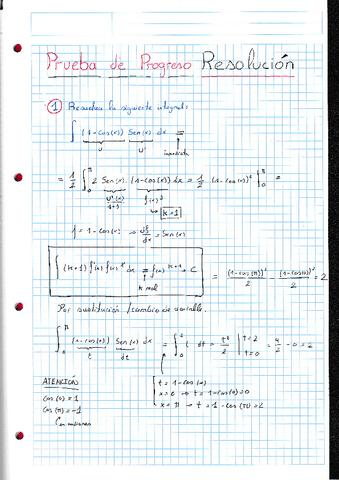 Prueba de Progreso Resolución
① Resuelva la siguiente integral:
∫ (1-cos(x)) Sen(x) dx =
u u'
inmediata
= 1/2 ∫₀^π 2 Sen(x) · (1-cos(x)) dx = 1/2 · (1-cos(x))² |₀^π =
k=1
f = 1-cos(x) ⇒ df/dx = Sen(x)
∫ (k+1) f'(x) f(x)^k dx = f(x)^(k+1) + C
= (1-cos(π))²/2 - (1-cos(0))²/2 = 2
Por sustitución / cambio de variable.
∫₀^π (1-cos(x)) Sen(x) dx = ∫₀² t dt = t²/2 | t=2 t=0 = 4/2 - 0 = 2
t dt
ATENCION
cos(0)=1
cos(π)=-1
t = 1-cos(x)
x=0 → t = 1-cos(0)=0
x=π → t = 1-cos(π)=2